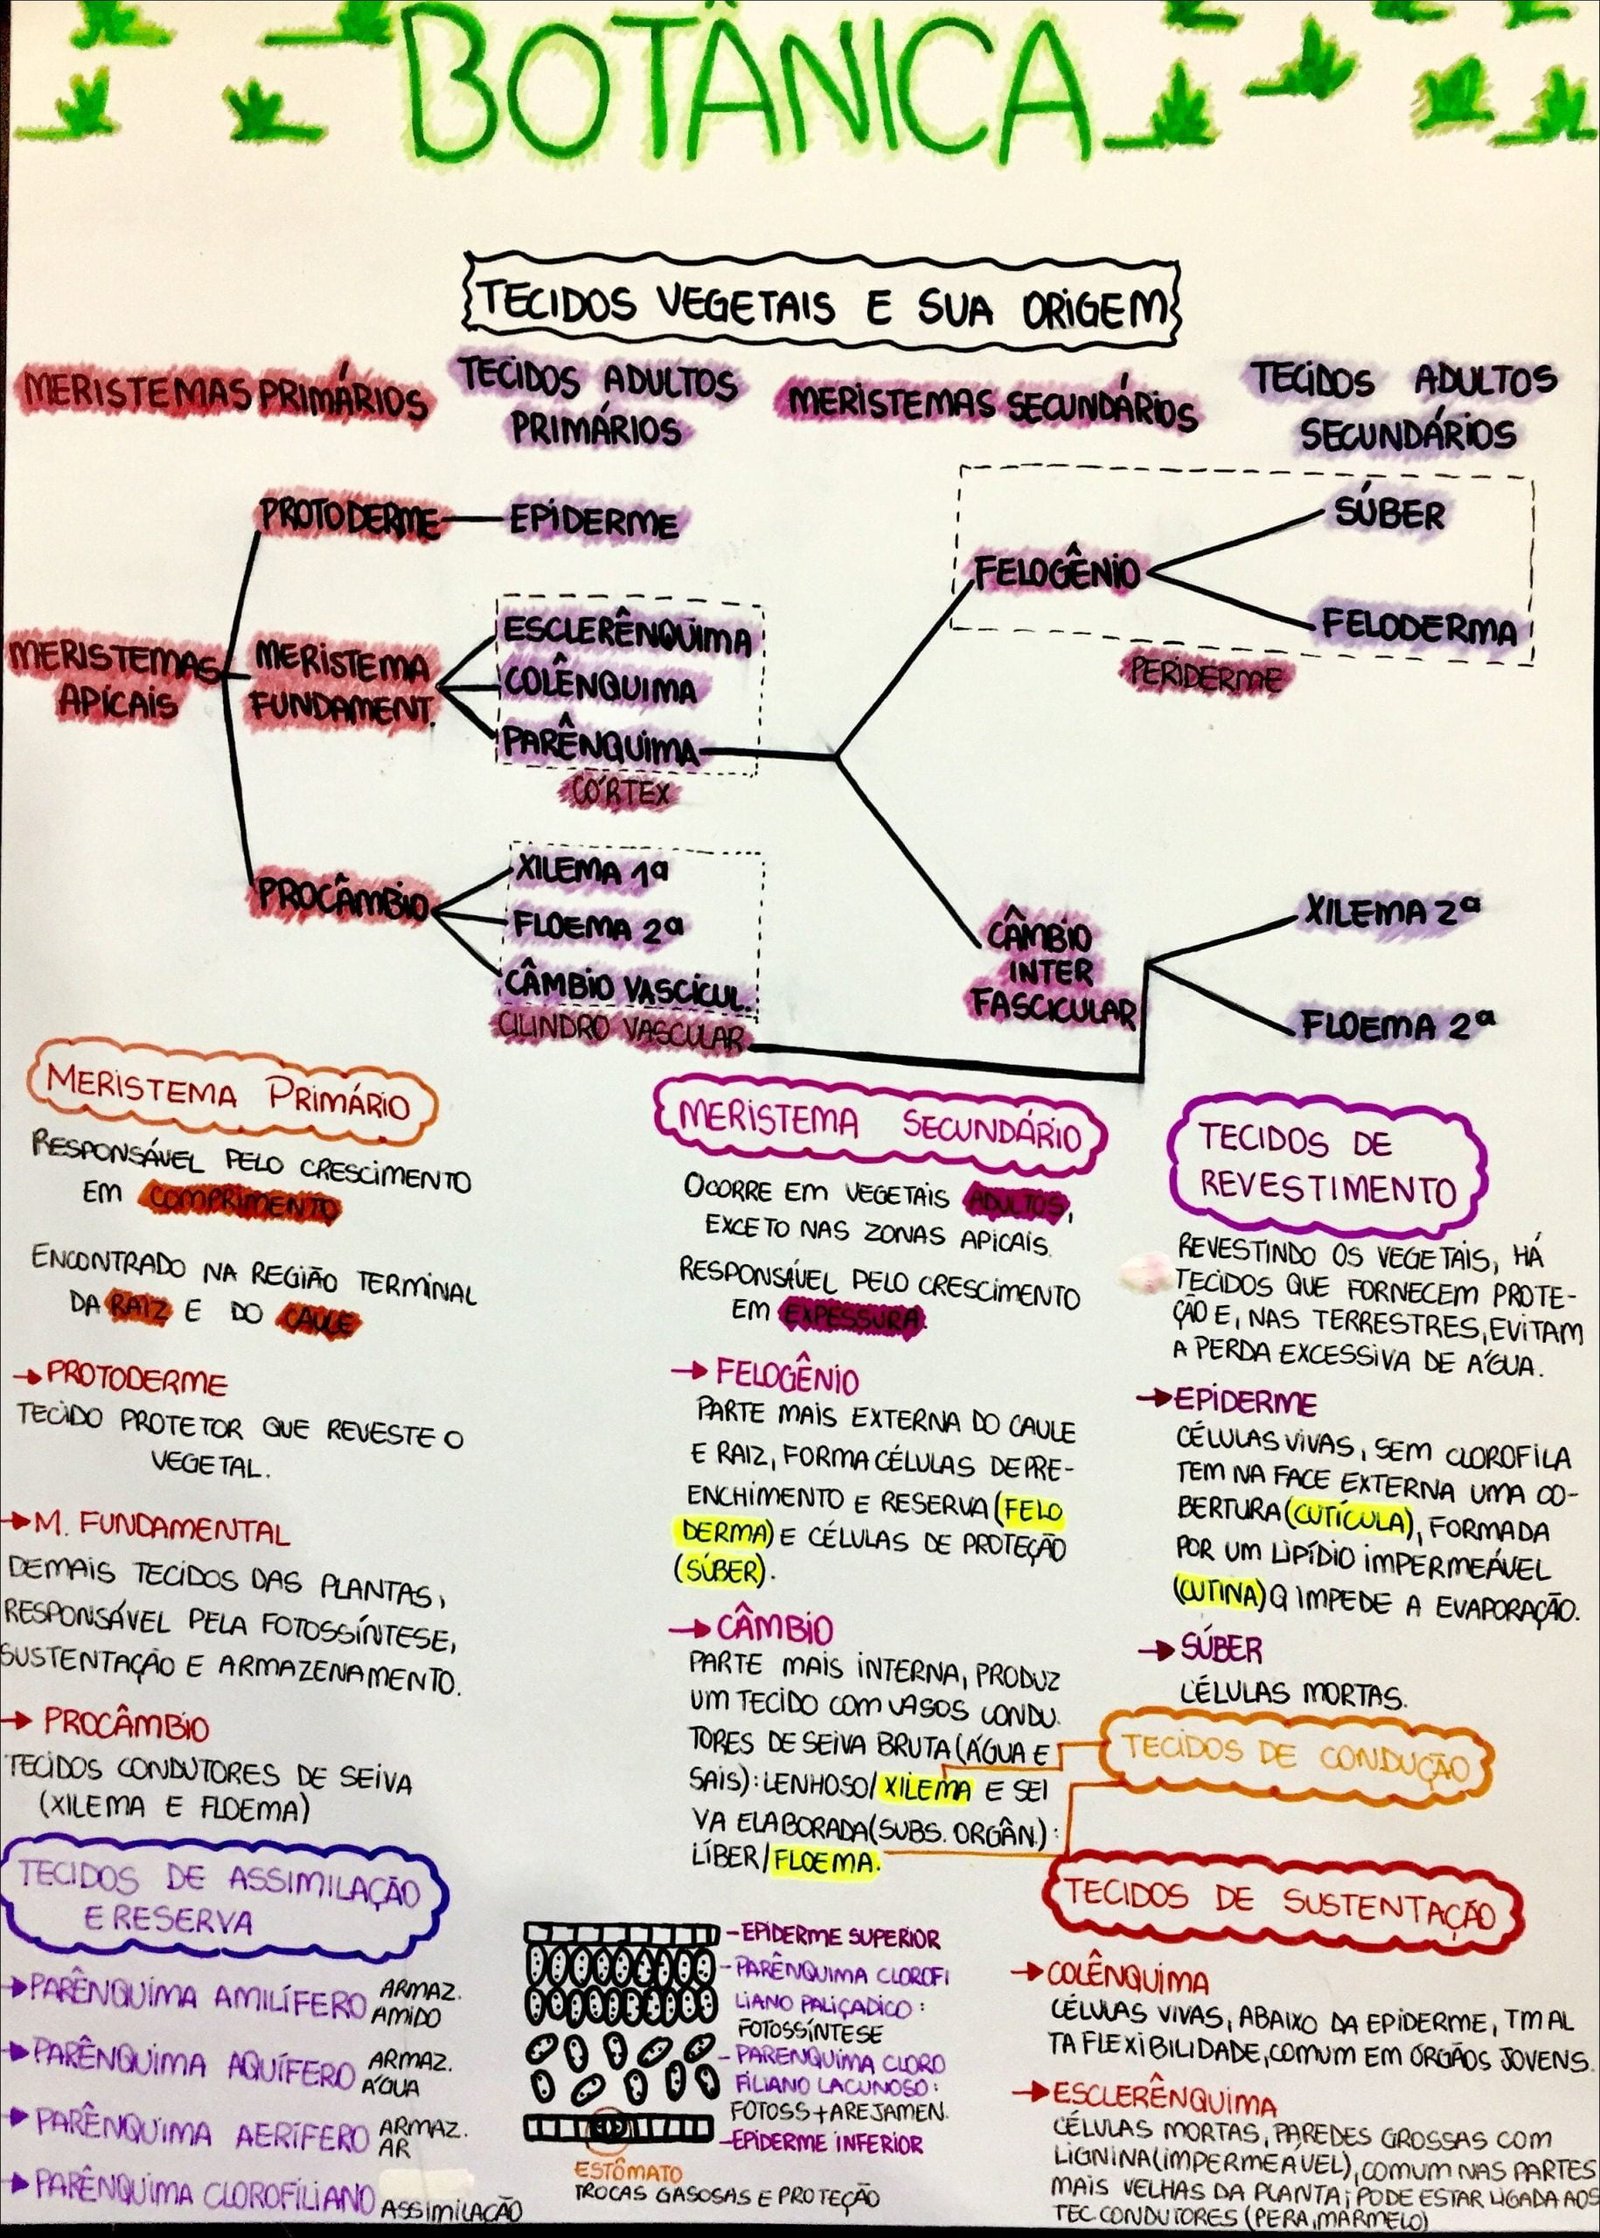 BOTÂNICA
TECIDOS VEGETAIS E SUA ORIGEM
MERISTEMAS PRIMÁRIOS
TECIDOS ADULTOS
PRIMÁRIOS
MERISTEMAS SECUNDÁRIOS
TECIDOS ADULTOS
SECUNDÁRIOS
MERISTEMAS
APICAIS
PROTODERME
MERISTEMA
FUNDAMENT.
PROCÂMBIO
EPIDERME
ESCLERÊNQUIMA
COLÊNQUIMA
PARÊNQUIMA
CÓRTEX
XILEMA 1ª
FLOEMA 2ª
CÂMBIO VASCÍCUL.
CILINDRO VASCULAR
FELOGÊNIO
CÂMBIO
INTER
FASCICULAR
SÚBER
FELODERMA
PERIDERME
XILEMA 2ª
FLOEMA 2ª
MERISTEMA PRIMÁRIO
RESPONSÁVEL PELO CRESCIMENTO
EM COMPRIMENTO
ENCONTRADO NA REGIÃO TERMINAL
DA RAIZ E DO CAULE
→ PROTODERME
TECIDO PROTETOR QUE REVESTE O
VEGETAL.
→ M. FUNDAMENTAL
DEMAIS TECIDOS DAS PLANTAS,
RESPONSÁVEL PELA FOTOSSÍNTESE,
SUSTENTAÇÃO E ARMAZENAMENTO.
→ PROCÂMBIO
TECIDOS CONDUTORES DE SEIVA
(XILEMA E FLOEMA)
TECIDOS DE ASSIMILAÇÃO
E RESERVA
→ PARÊNQUIMA AMILÍFERO ARMAZ.
AMIDO
→ PARÊNQUIMA AQUÍFERO ARMAZ.
ÁGUA
→ PARÊNQUIMA AERÍFERO ARMAZ.
AR
→ PARÊNQUIMA CLOROFILIANO ASSIMILAÇÃO
MERISTEMA SECUNDÁRIO
OCORRE EM VEGETAIS ADULTOS,
EXCETO NAS ZONAS APICAIS.
RESPONSÁVEL PELO CRESCIMENTO
EM EXPESSURA.
→ FELOGÊNIO
PARTE MAIS EXTERNA DO CAULE
E RAIZ, FORMA CÉLULAS DE PRE-
ENCHIMENTO E RESERVA (FELO
DERMA) E CÉLULAS DE PROTEÇÃO
(SÚBER).
→ CÂMBIO
PARTE MAIS INTERNA, PRODUZ
UM TECIDO COM VASOS CONDU.
TORES DE SEIVA BRUTA (ÁGUA E
SAIS): LENHOSO/XILEMA E SEI
VA ELABORADA (SUBS. ORGÂN.):
LÍBER/FLOEMA.
-EPIDERME SUPERIOR
-PARÊNQUIMA CLOROFI
LIANO PALIÇADICO:
FOTOSSÍNTESE
-PARENQUIMA CLORO
FILIANO LACUNOSO:
FOTOSS+AREJAMEN.
-EPIDERME INFERIOR
ESTÔMATO
TROCAS GASOSAS E PROTEÇÃO
TECIDOS DE
REVESTIMENTO
REVESTINDO OS VEGETAIS, HÁ
TECIDOS QUE FORNECEM PROTE-
ÇÃO E, NAS TERRESTRES, EVITAM
A PERDA EXCESSIVA DE ÁGUA.
→ EPIDERME
CÉLULAS VIVAS, SEM CLOROFILA
TEM NA FACE EXTERNA UMA CO-
BERTURA (CUTÍCULA), FORMADA
POR UM LIPÍDIO IMPERMEÁVEL
(CUTINA) Q IMPEDE A EVAPORAÇÃO.
→ SÚBER
CÉLULAS MORTAS.
TECIDOS DE CONDUÇÃO
TECIDOS DE SUSTENTAÇÃO
→ COLÊNQUIMA
CÉLULAS VIVAS, ABAIXO DA EPIDERME, TM AL
TA FLEXIBILIDADE, COMUM EM ÓRGÃOS JOVENS.
→ ESCLERÊNQUIMA
CÉLULAS MORTAS, PAREDES GROSSAS COM
LIGNINA (IMPERMEÁVEL), COMUM NAS PARTES
MAIS VELHAS DA PLANTA; PODE ESTAR LIGADA AOS
TEC. CONDUTORES (PERA, MARMELO)